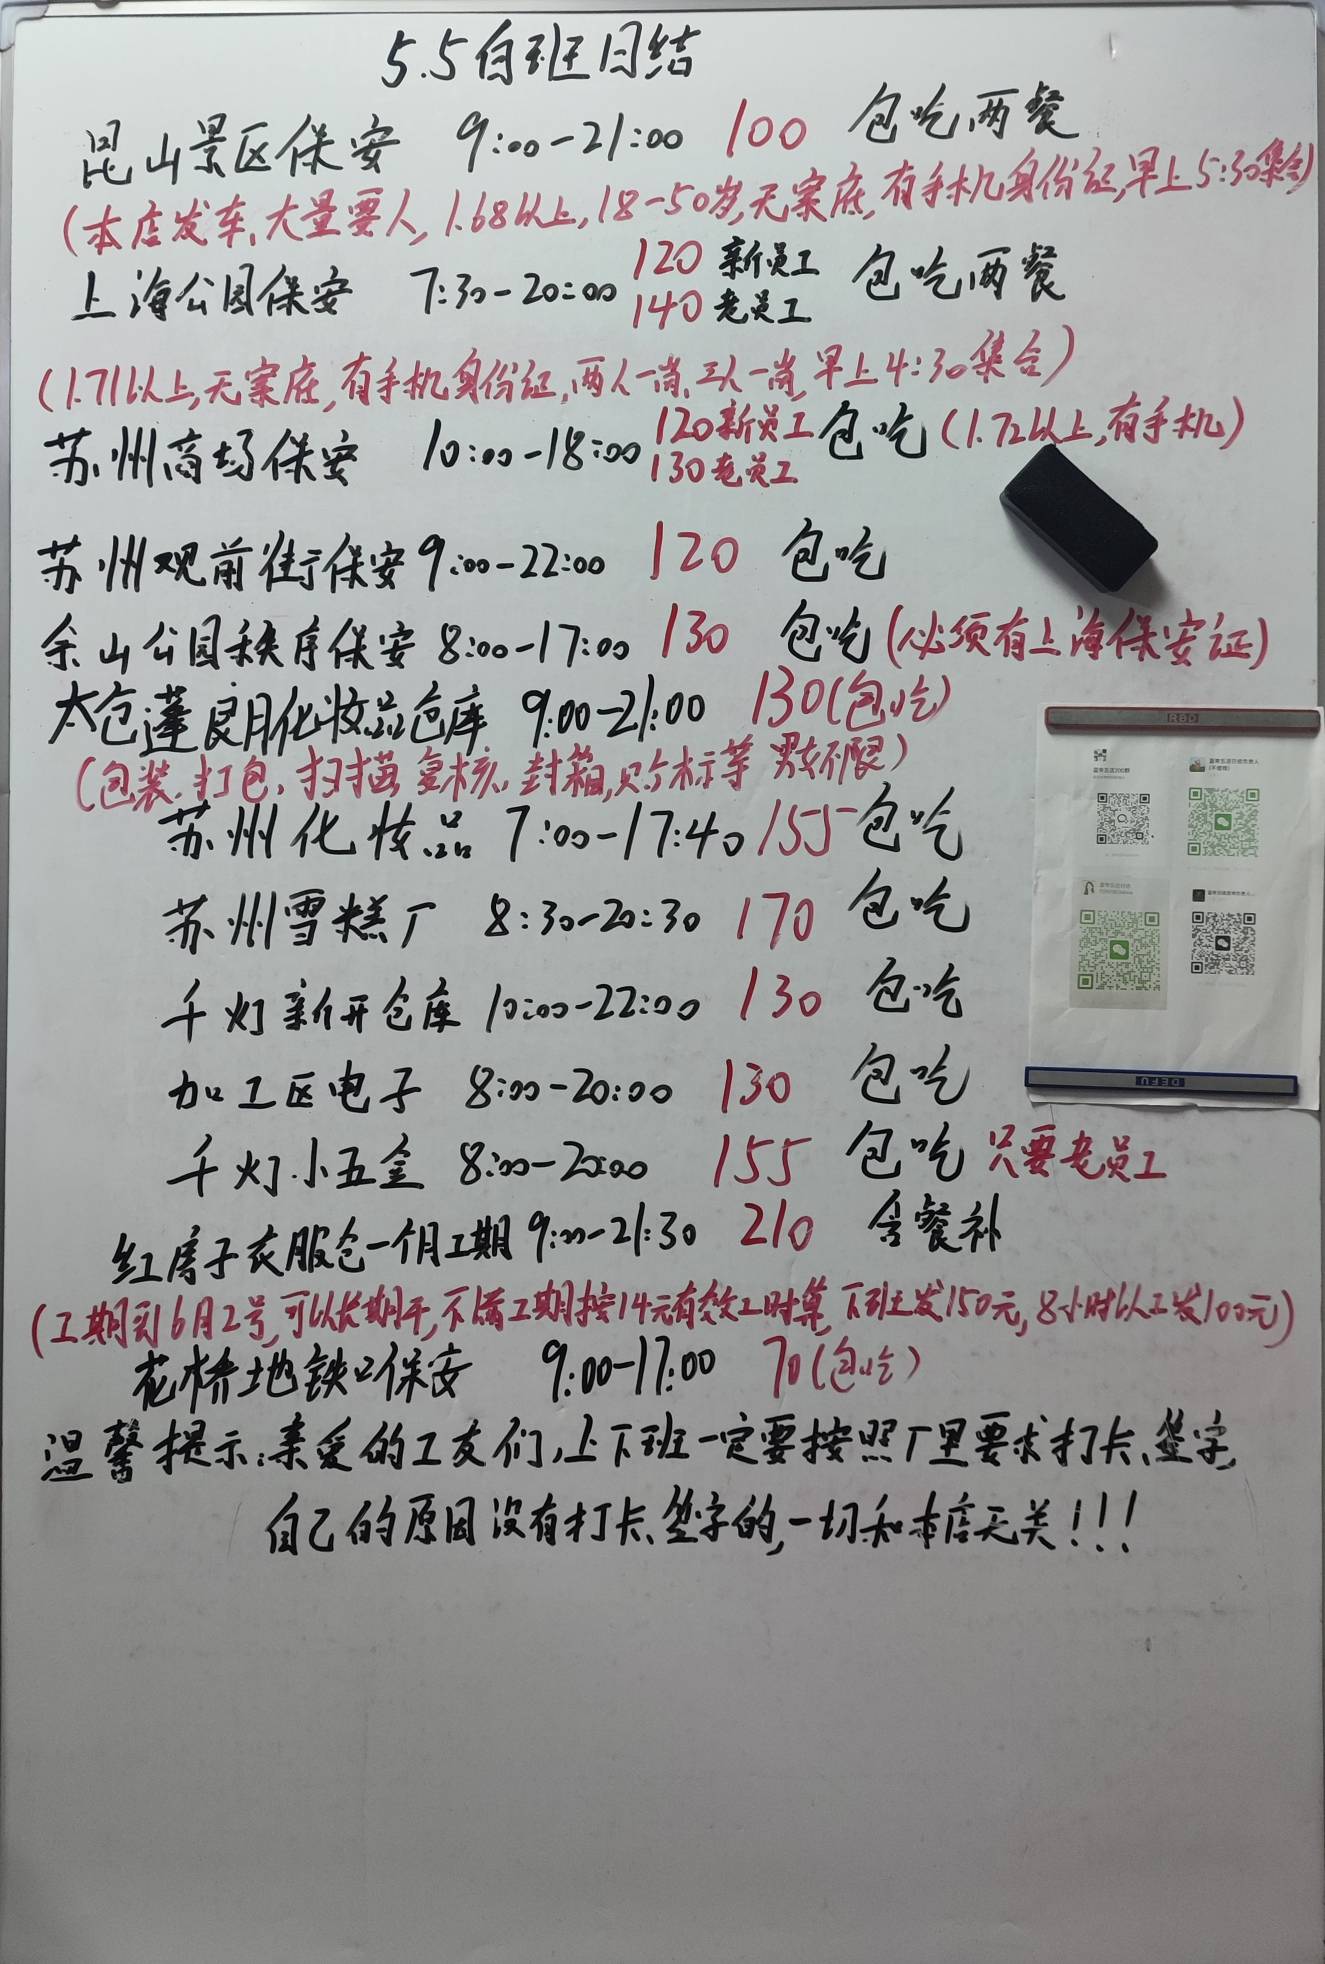 5.5白班日结
昆山景区保安 9:00-21:00 100 包吃两餐
(本店发车、大量要人, 1.68以上, 18-50岁, 无案底, 有手机身份证, 早上5:30集合)
上海公园保安 7:30-20:00 120 新员工 包吃两餐
140 老员工
(1.71以上, 无案底, 有手机身份证, 两人一岗、三人一岗, 早上4:30集合)
苏州商场保安 10:00-18:00 120新员工 包吃(1.72以上, 有手机)
130老员工
苏州观前街保安 9:00-22:00 120 包吃
佘山公园秩序保安 8:00-17:00 130 包吃(必须有上海保安证)
太仓蓬良月化妆品仓库 9:00-21:00 130(包吃)
(包装、打包、扫描、复核、封箱, 贴标等 男女不限)
苏州化妆品 7:00-17:40 155 包吃
苏州雪糕厂 8:30-20:30 170 包吃
千灯新开仓库 10:00-22:00 130 包吃
加工区电子 8:00-20:00 130 包吃
千灯小五金 8:00-20:00 155 包吃 只要老员工
红房子衣服仓一个月工期 9:00-21:30 210 含餐补
(工期到6月2号, 可以长期干, 不满工期按14元有效工时算, 下班发150元, 8小时以下发100元)
花桥地铁口保安 9:00-17:00 70(包吃)
温馨提示:亲爱的工友们, 上下班一定要按照厂里要求打卡、签字,
自己的原因没有打卡、签字的, 一切和本店无关!!!
RBD
DEFU